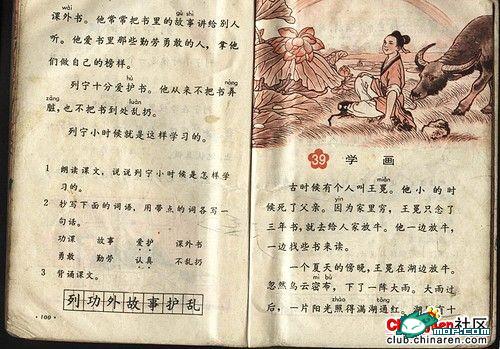 wài
课外书。他常常把书里的故事讲给别人
gù shi
听。他爱书里那些勤劳勇敢的人，拿他
们做自己的榜样。
hù nòng
列宁十分爱护书。他从来不把书弄
zāng luàn
脏，也不把书到处乱扔。
列宁小时候就是这样学习的。
1 朗读课文，说说列宁小时候是怎样学
习的。
2 抄写下面的词语，用带点的词各写一
句话。
功课 故事 爱护 课外书
勇敢 勤劳 认真 不乱扔
3 背诵课文。
列功外故事护乱
·100·
39 学画
miǎn
古时候有个人叫王冕。他小的时
yīn
候死了父亲。因为家里穷，王冕只念了
三年书，就去给人家放牛。他一边放牛，
一边找些书来读。
一个夏天的傍晚，王冕在湖边放牛。
mì bù
忽然乌云密布，下了一阵大雨。大雨过
zhào tōng
后，一片阳光照得满湖通红。湖里有十
社区
club.chinaren.com